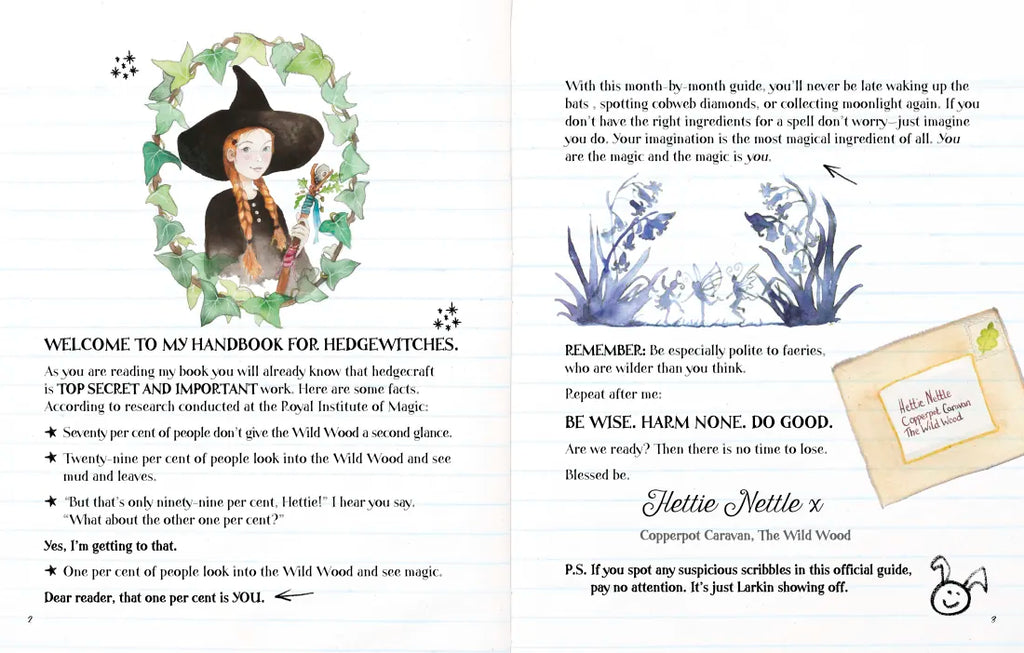 WELCOME TO MY HANDBOOK FOR HEDGEWITCHES.
As you are reading my book you will already know that hedgecraft
is TOP SECRET AND IMPORTANT work. Here are some facts.
According to research conducted at the Royal Institute of Magic:
★ Seventy per cent of people don't give the Wild Wood a second glance.
★ Twenty-nine per cent of people look into the Wild Wood and see
mud and leaves.
★ "But that's only ninety-nine per cent, Hettie!" I hear you say.
"What about the other one per cent?"
Yes, I'm getting to that.
★ One per cent of people look into the Wild Wood and see magic.
Dear reader, that one per cent is YOU.
2
With this month-by-month guide, you'll never be late waking up the
bats , spotting cobweb diamonds, or collecting moonlight again. If you
don't have the right ingredients for a spell don't worry—just imagine
you do. Your imagination is the most magical ingredient of all. You
are the magic and the magic is you.
REMEMBER: Be especially polite to faeries,
who are wilder than you think.
Repeat after me:
BE WISE. HARM NONE. DO GOOD.
Are we ready? Then there is no time to lose.
Blessed be.
Hettie Nettle x
Copperpot Caravan, The Wild Wood
Hettie Nettle
Copperpot Caravan
The Wild Wood
P.S. If you spot any suspicious scribbles in this official guide,
pay no attention. It's just Larkin showing off.
3